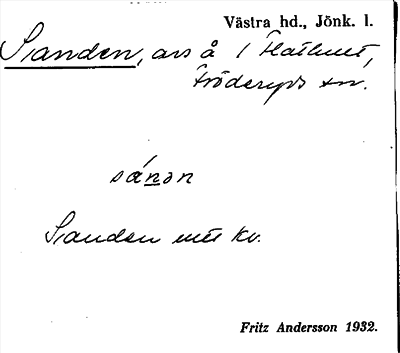 Västra hd., Jönk. l.
Sanden, avs å 1 Flathult,
Fröderyds sn.
sánən
Sanden utė kv.
Fritz Andersson 1932.